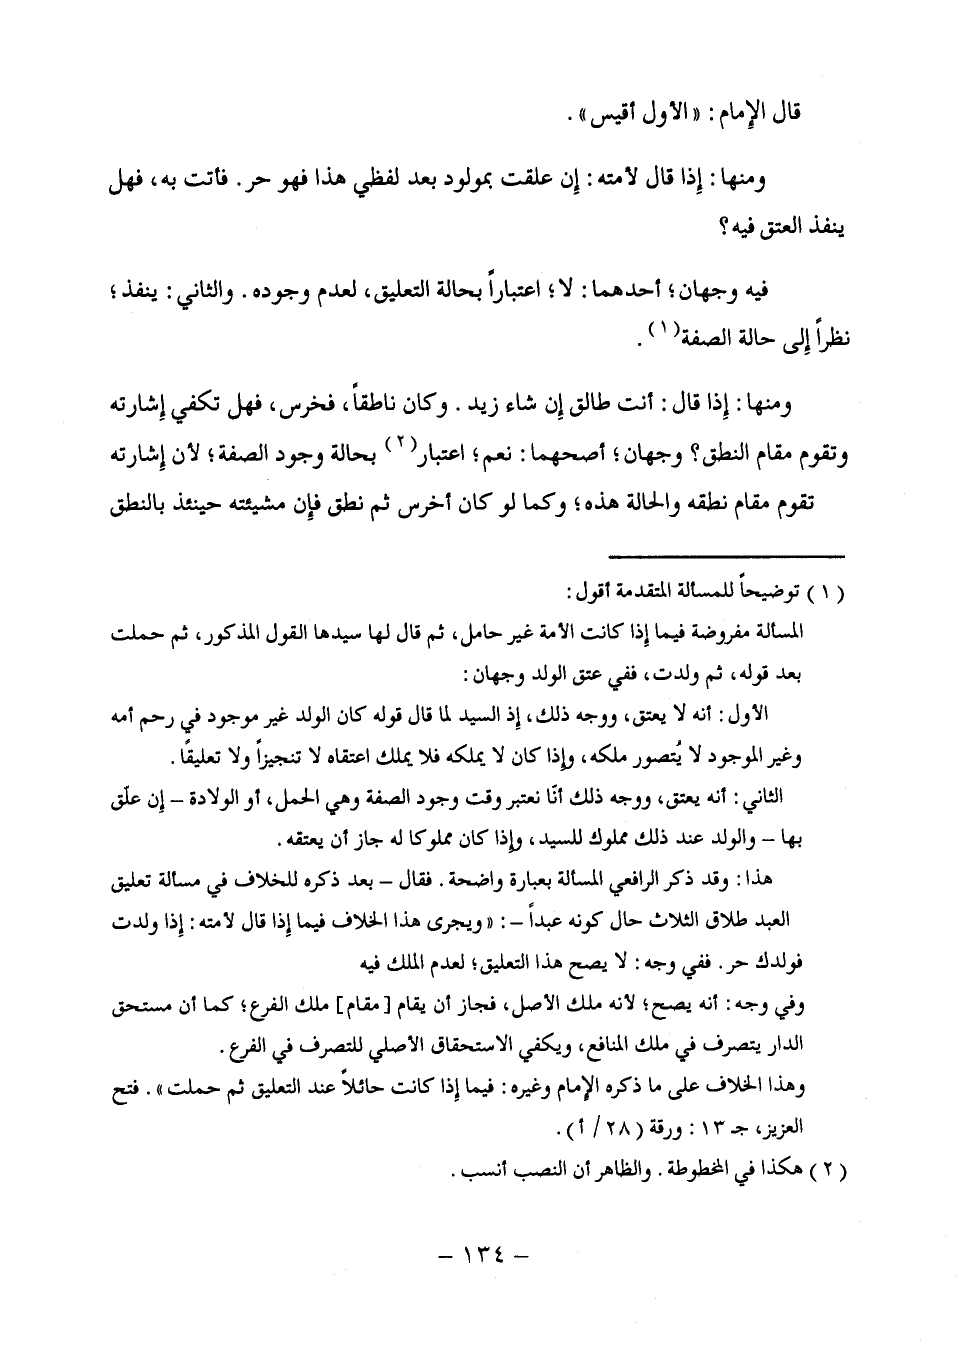 قال الإمام: «الأول أقيس».
ومنها: إذا قال لأمته: إن علقت بمولود بعد لفظي هذا فهو حر. فأتت به، فهل
ينفذ العتق فيه؟
فيه وجهان؛ أحدهما: لا؛ اعتباراً بحالة التعليق، لعدم وجوده. والثاني: ينفذ؛
نظراً إلى حالة الصفة(١).
ومنها: إذا قال: أنت طالق إن شاء زيد. وكان ناطقاً، فخرس، فهل تكفي إشارته
وتقوم مقام النطق؟ وجهان؛ أصحهما: نعم؛ اعتبار(٢) بحالة وجود الصفة؛ لأن إشارته
تقوم مقام نطقه والحالة هذه؛ وكما لو كان أخرس ثم نطق فإن مشيئته حينئذ بالنطق
(١) توضيحاً للمسألة المتقدمة أقول:
المسألة مفروضة فيما إذا كانت الأمة غير حامل، ثم قال لها سيدها القول المذكور، ثم حملت
بعد قوله، ثم ولدت، ففي عتق الولد وجهان:
الأول: أنه لا يعتق، ووجه ذلك، إذ السيد لما قال قوله كان الولد غير موجود في رحم أمه
وغير الموجود لا يُتصور ملكه، وإذا كان لا يملكه فلا يملك اعتقاه لا تنجيزاً ولا تعليقًا.
الثاني: أنه يعتق، ووجه ذلك أنّا نعتبر وقت وجود الصفة وهي الحمل، أو الولادة – إن علّق
بها – والولد عند ذلك مملوك للسيد، وإذا كان مملوكا له جاز أن يعتقه.
هذا: وقد ذكر الرافعي المسألة بعبارة واضحة. فقال – بعد ذكره للخلاف في مسألة تعليق
العبد طلاق الثلاث حال كونه عبداً –: «ويجرى هذا الخلاف فيما إذا قال لأمته: إذا ولدت
فولدك حر. ففي وجه: لا يصح هذا التعليق؛ لعدم الملك فيه
وفي وجه: أنه يصح؛ لأنه ملك الأصل، فجاز أن يقام [مقام] ملك الفرع؛ كما أن مستحق
الدار يتصرف في ملك المنافع، ويكفي الاستحقاق الأصلي للتصرف في الفرع.
وهذا الخلاف على ما ذكره الإمام وغيره: فيما إذا كانت حائلاً عند التعليق ثم حملت». فتح
العزيز، جـ ١٣: ورقة (٢٨/ أ).
(٢) هكذا في المخطوطة. والظاهر أن النصب أنسب.
– ١٣٤ –